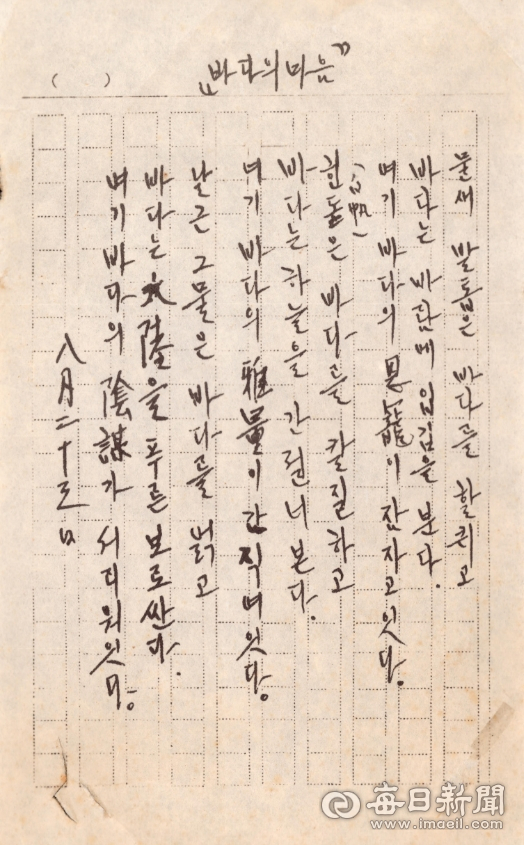 ( )
„바다의마음"
물새 발톱은 바다를 할퀴고
바다는 바람에 입김을 분다.
여기 바다의 恩寵이 잠자고잇다。
흰돛은 바다를 칼질하고
(白帆)
바다는하늘을 간질너본다.
여기 바다의 雅量이간직여잇다。
낡근 그물은 바다를 얽고
바다는 大陸을 푸른보로싼다.
여기 바다의 陰謀가 서리워잇다。
八月二十三日
每日新聞
www.imaeil.com